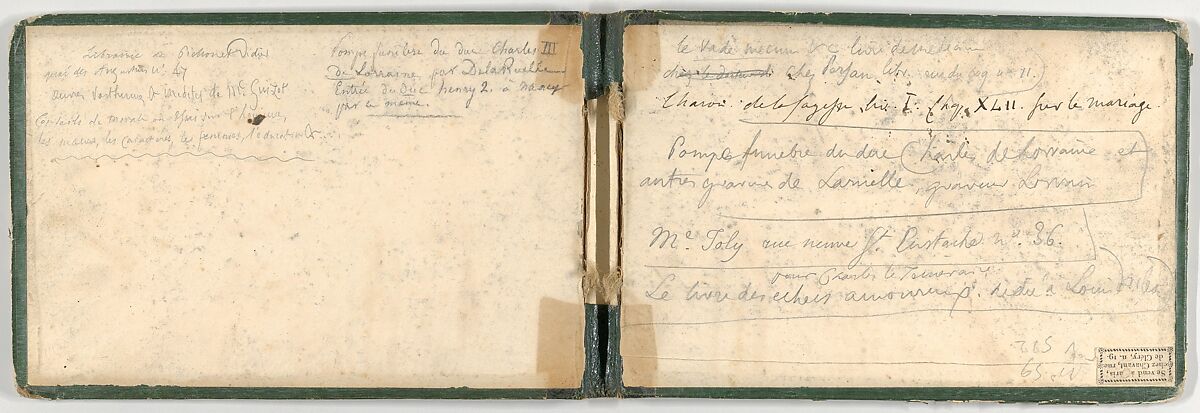 Librairie de Pichonet Didier
quai des Augustins nº 47
œuvres posthumes & inédites de Mme Guizot
Conseils de morale ou essai sur l'homme,
les mœurs, les caractères, les femmes, l'éducation &
Pompe funèbre du duc Charles III
de Lorraine, par De la Ruelle
Entrée du duc henry 2. à Nancy
par le même.
le Vade mecum
chez Persan lib. rue du 11.
Charon de la sagesse, liv. I. Chap. XLII. sur le mariage.
Pompe funèbre du duc Charles de Lorraine et
autres gravures de Laruelle, graveur Lorrain
Me. Joly rue neuve St. Eustache nº. 36.
pour Charles le Téméraire
Le livre des echecs amoureux. dédié à Louis
365
65
Se vend à Paris,
chez Chavant, rue
de Cléry, n. 19.